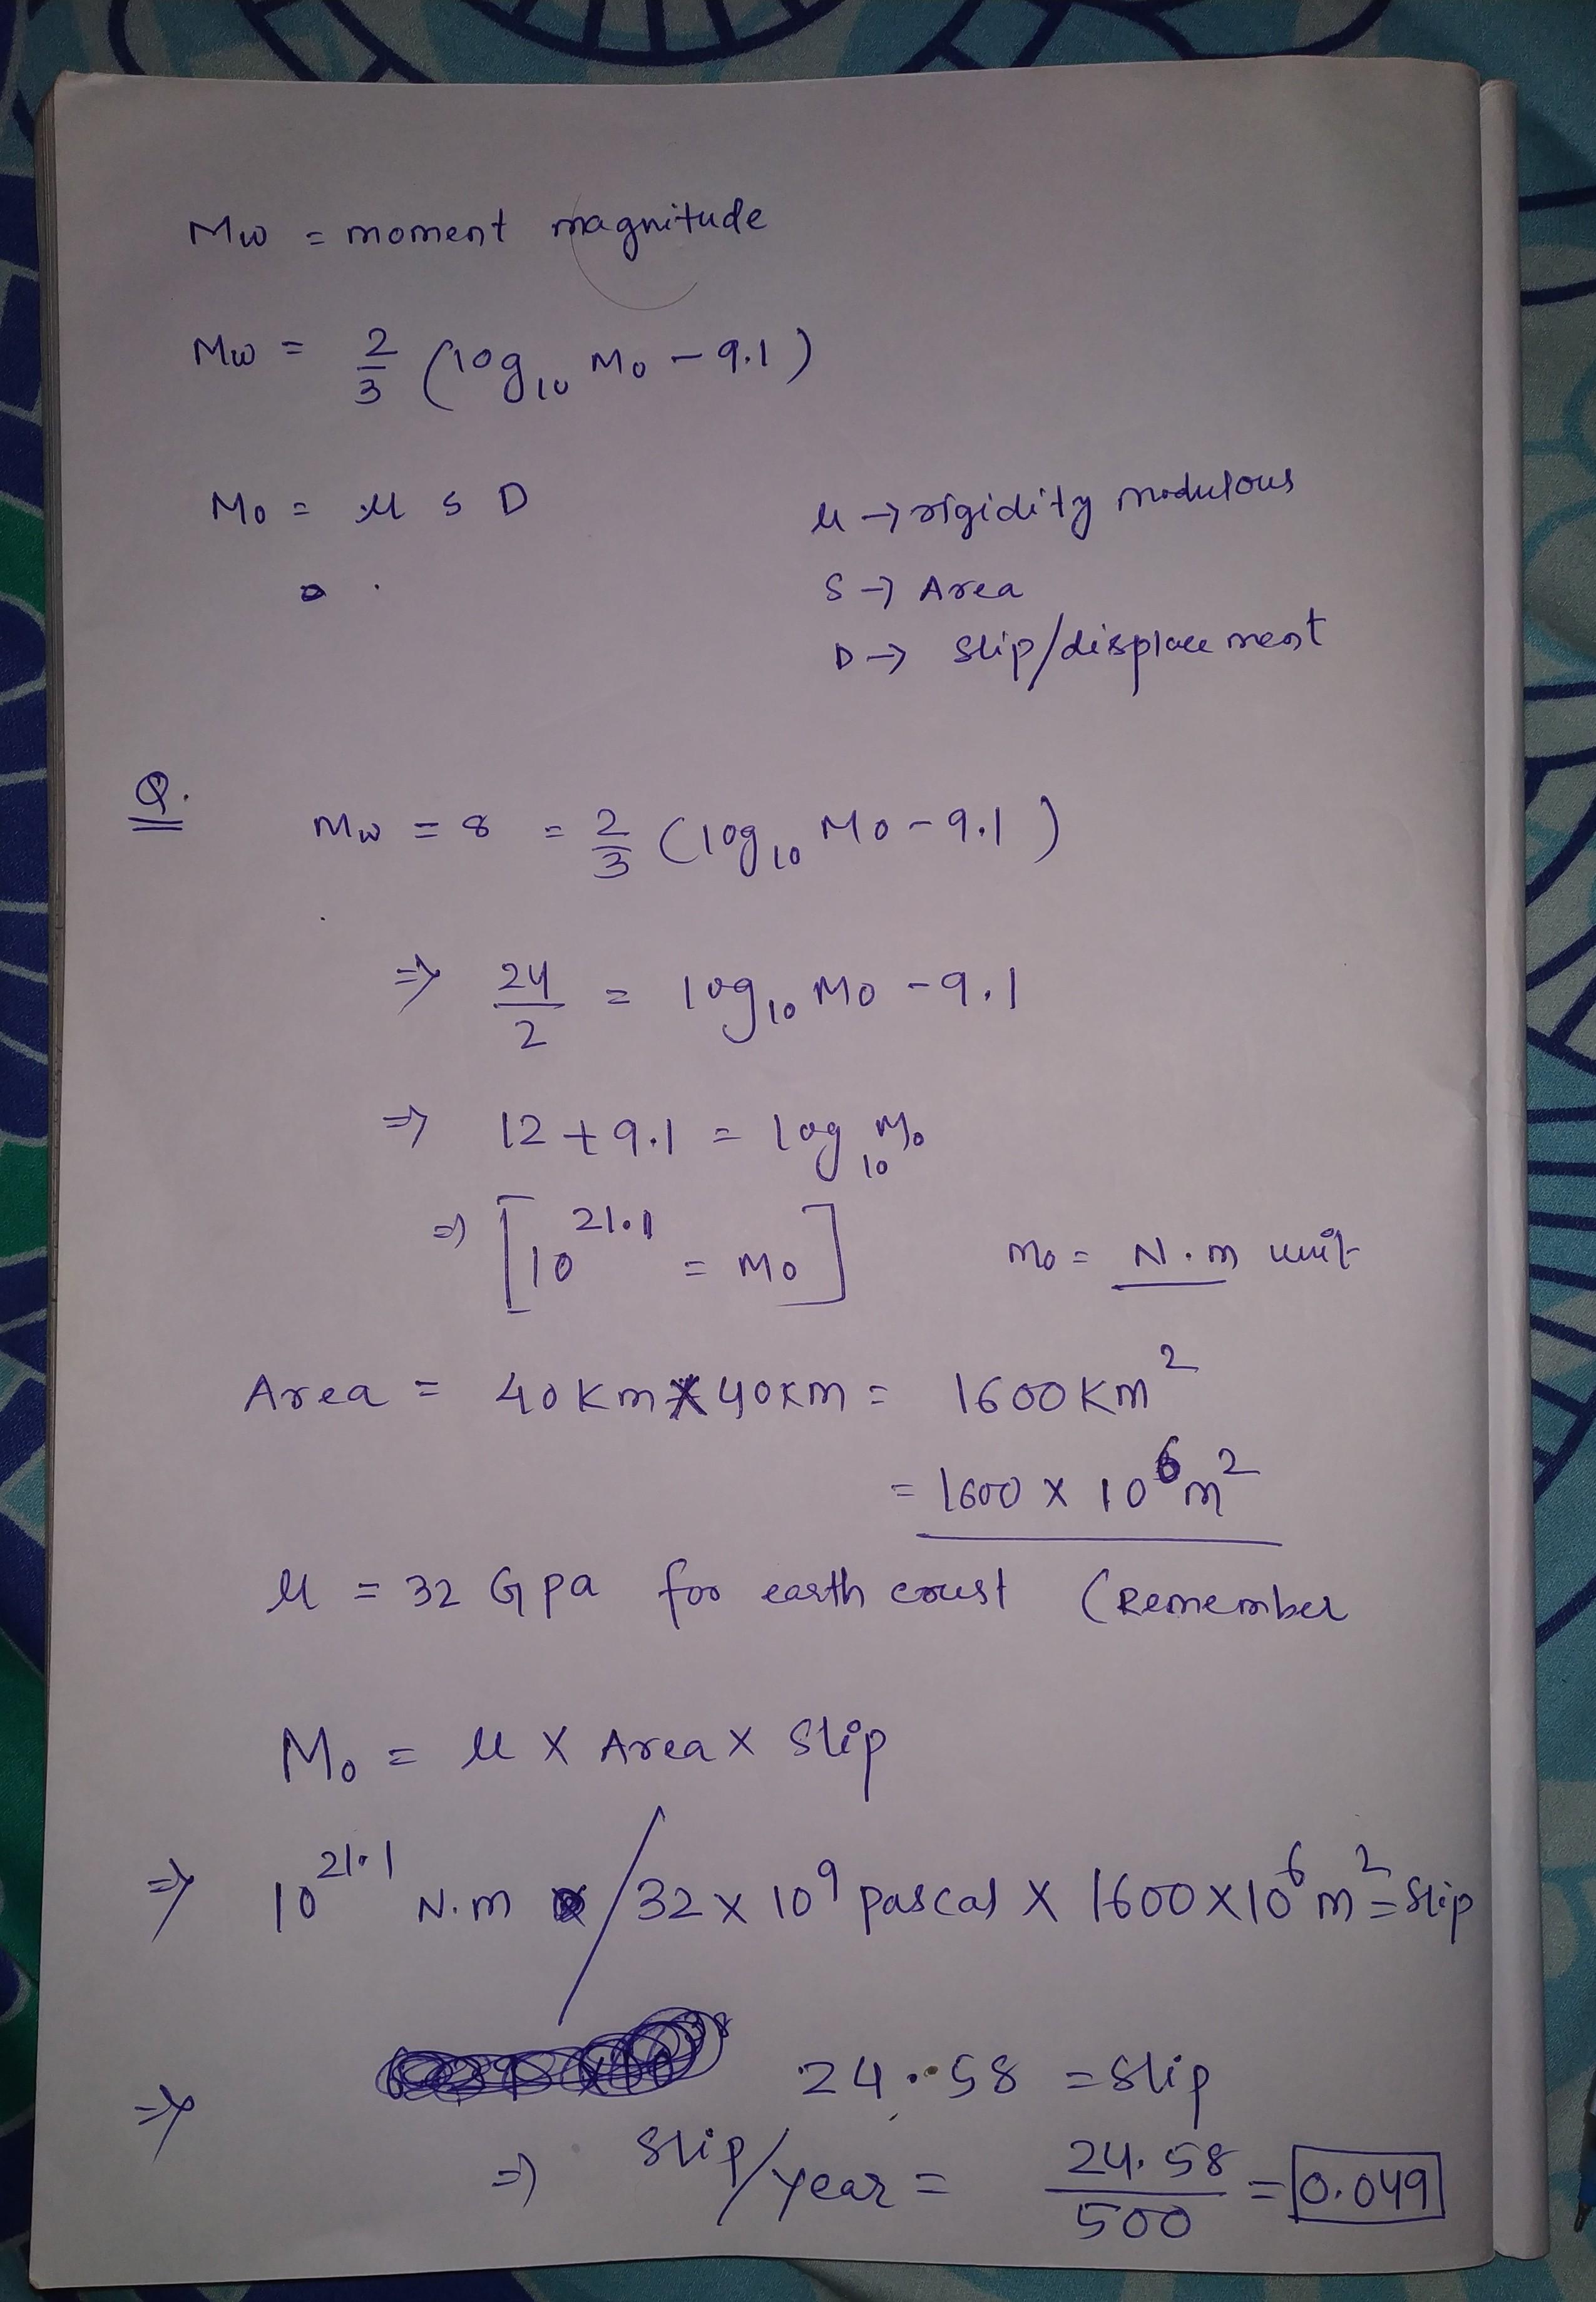 Mw = moment magnitude
Mw = 2/3 (log₁₀ Mo - 9.1)
Mo = μ S D
μ → rigidity modulous
S → Area
D → slip/displacement
Q.
Mw = 8 = 2/3 (log₁₀ Mo - 9.1)
⇒ 24/2 = log₁₀ Mo - 9.1
⇒ 12 + 9.1 = log₁₀ Mo
⇒ [10^21.1 = Mo] Mo = N.m unit
Area = 40 Km X 40Km = 1600 Km²
= 1600 X 10⁶ m²
μ = 32 Gpa for earth crust (Remember
Mo = μ X Area X Slip
⇒ 10^21.1 N.m / 32 X 10⁹ pascal X 1600 X 10⁶ m² = Slip
⇒ 24.58 = Slip
⇒ Slip/year = 24.58/500 = 0.049